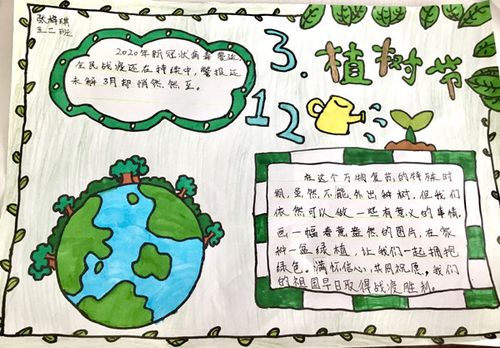 张梅琪
三二班
2020年新冠状病毒蔓延
全民战疫还在持续中,警报还
未解3月却悄然然至。
3.植树节
12
在这个万物复苏的特殊时
期,虽然不能外出种树,但我们
依然可以做一些有意义的事情,
画一幅春意盎然的图片,在家
种一盆绿植,让我们一起拥抱
绿色。满怀信心,共同祝愿,我们
的祖国早日取得战疫胜利。